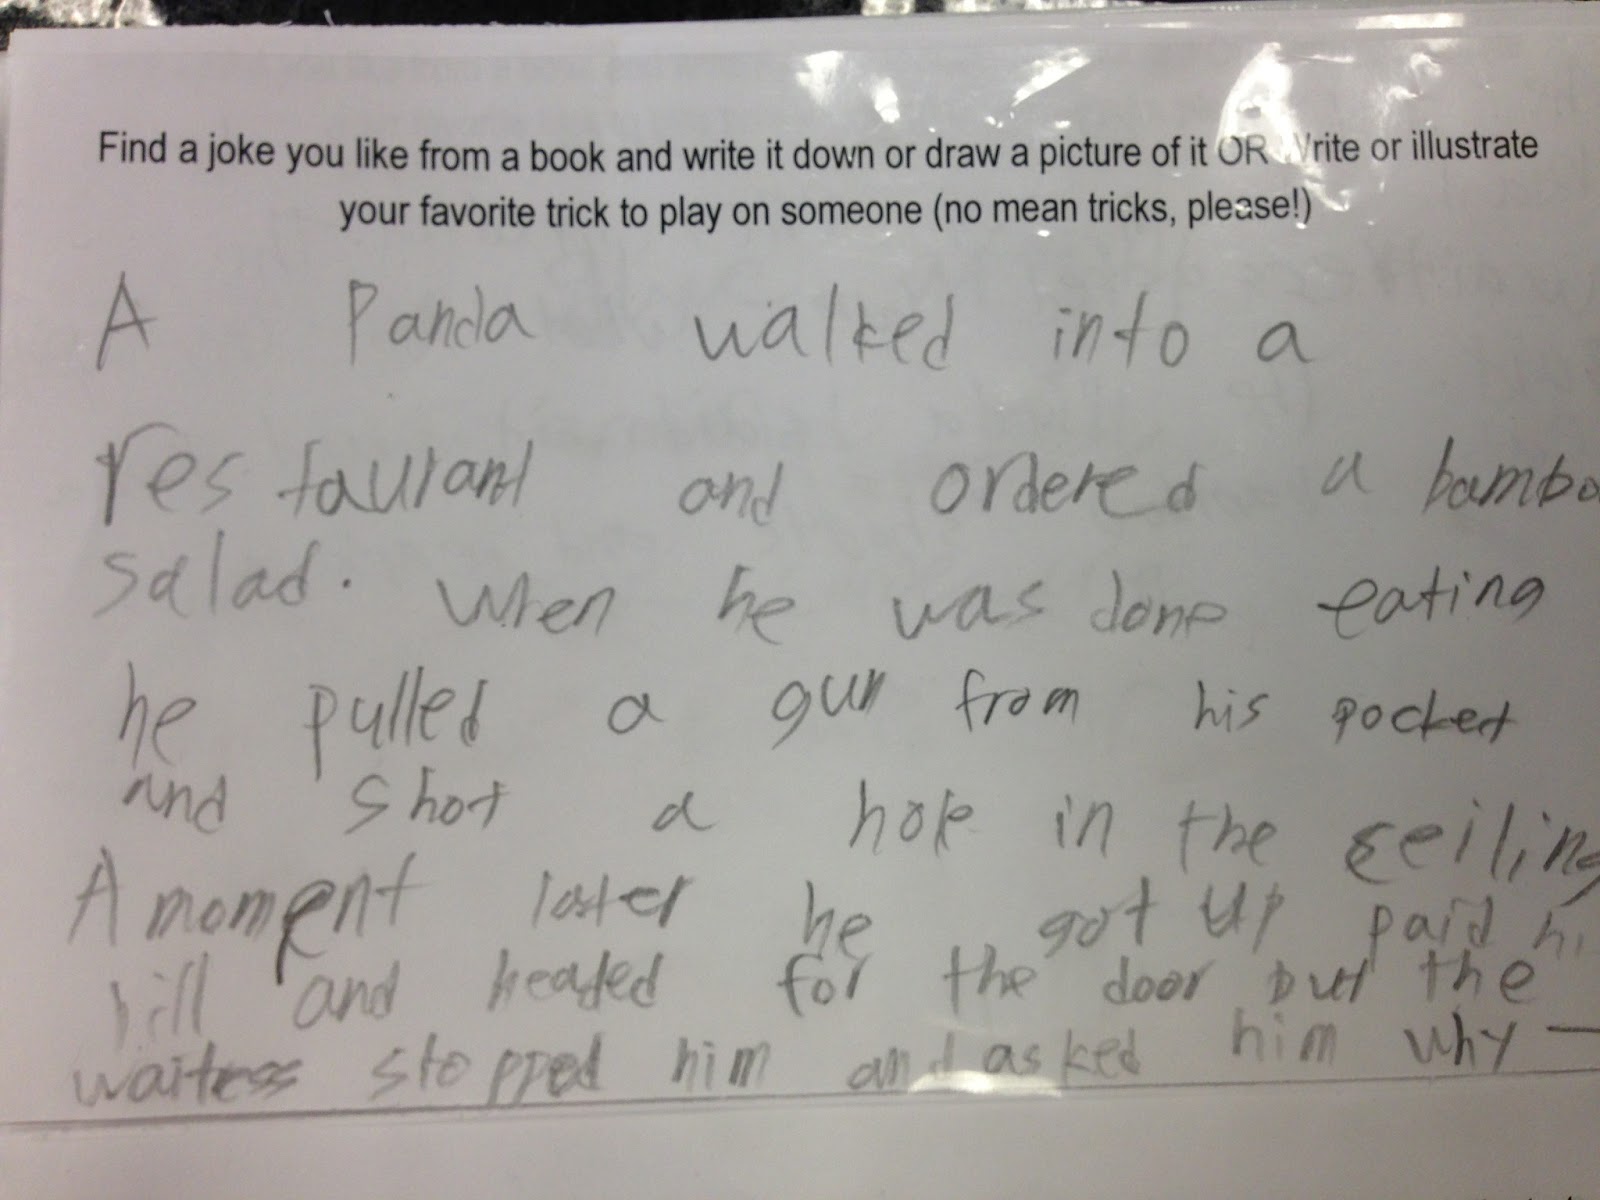 Find a joke you like from a book and write it down or draw a picture of it OR Write or illustrate
your favorite trick to play on someone (no mean tricks, please!)
A Panda walked into a
restaurant and ordered a bambo
salad. When he was done eating
he pulled a gun from his pocket
and shot a hole in the ceiling
A moment later he got up paid hi
bill and headed for the door but the
waitress stopped him and asked him why —